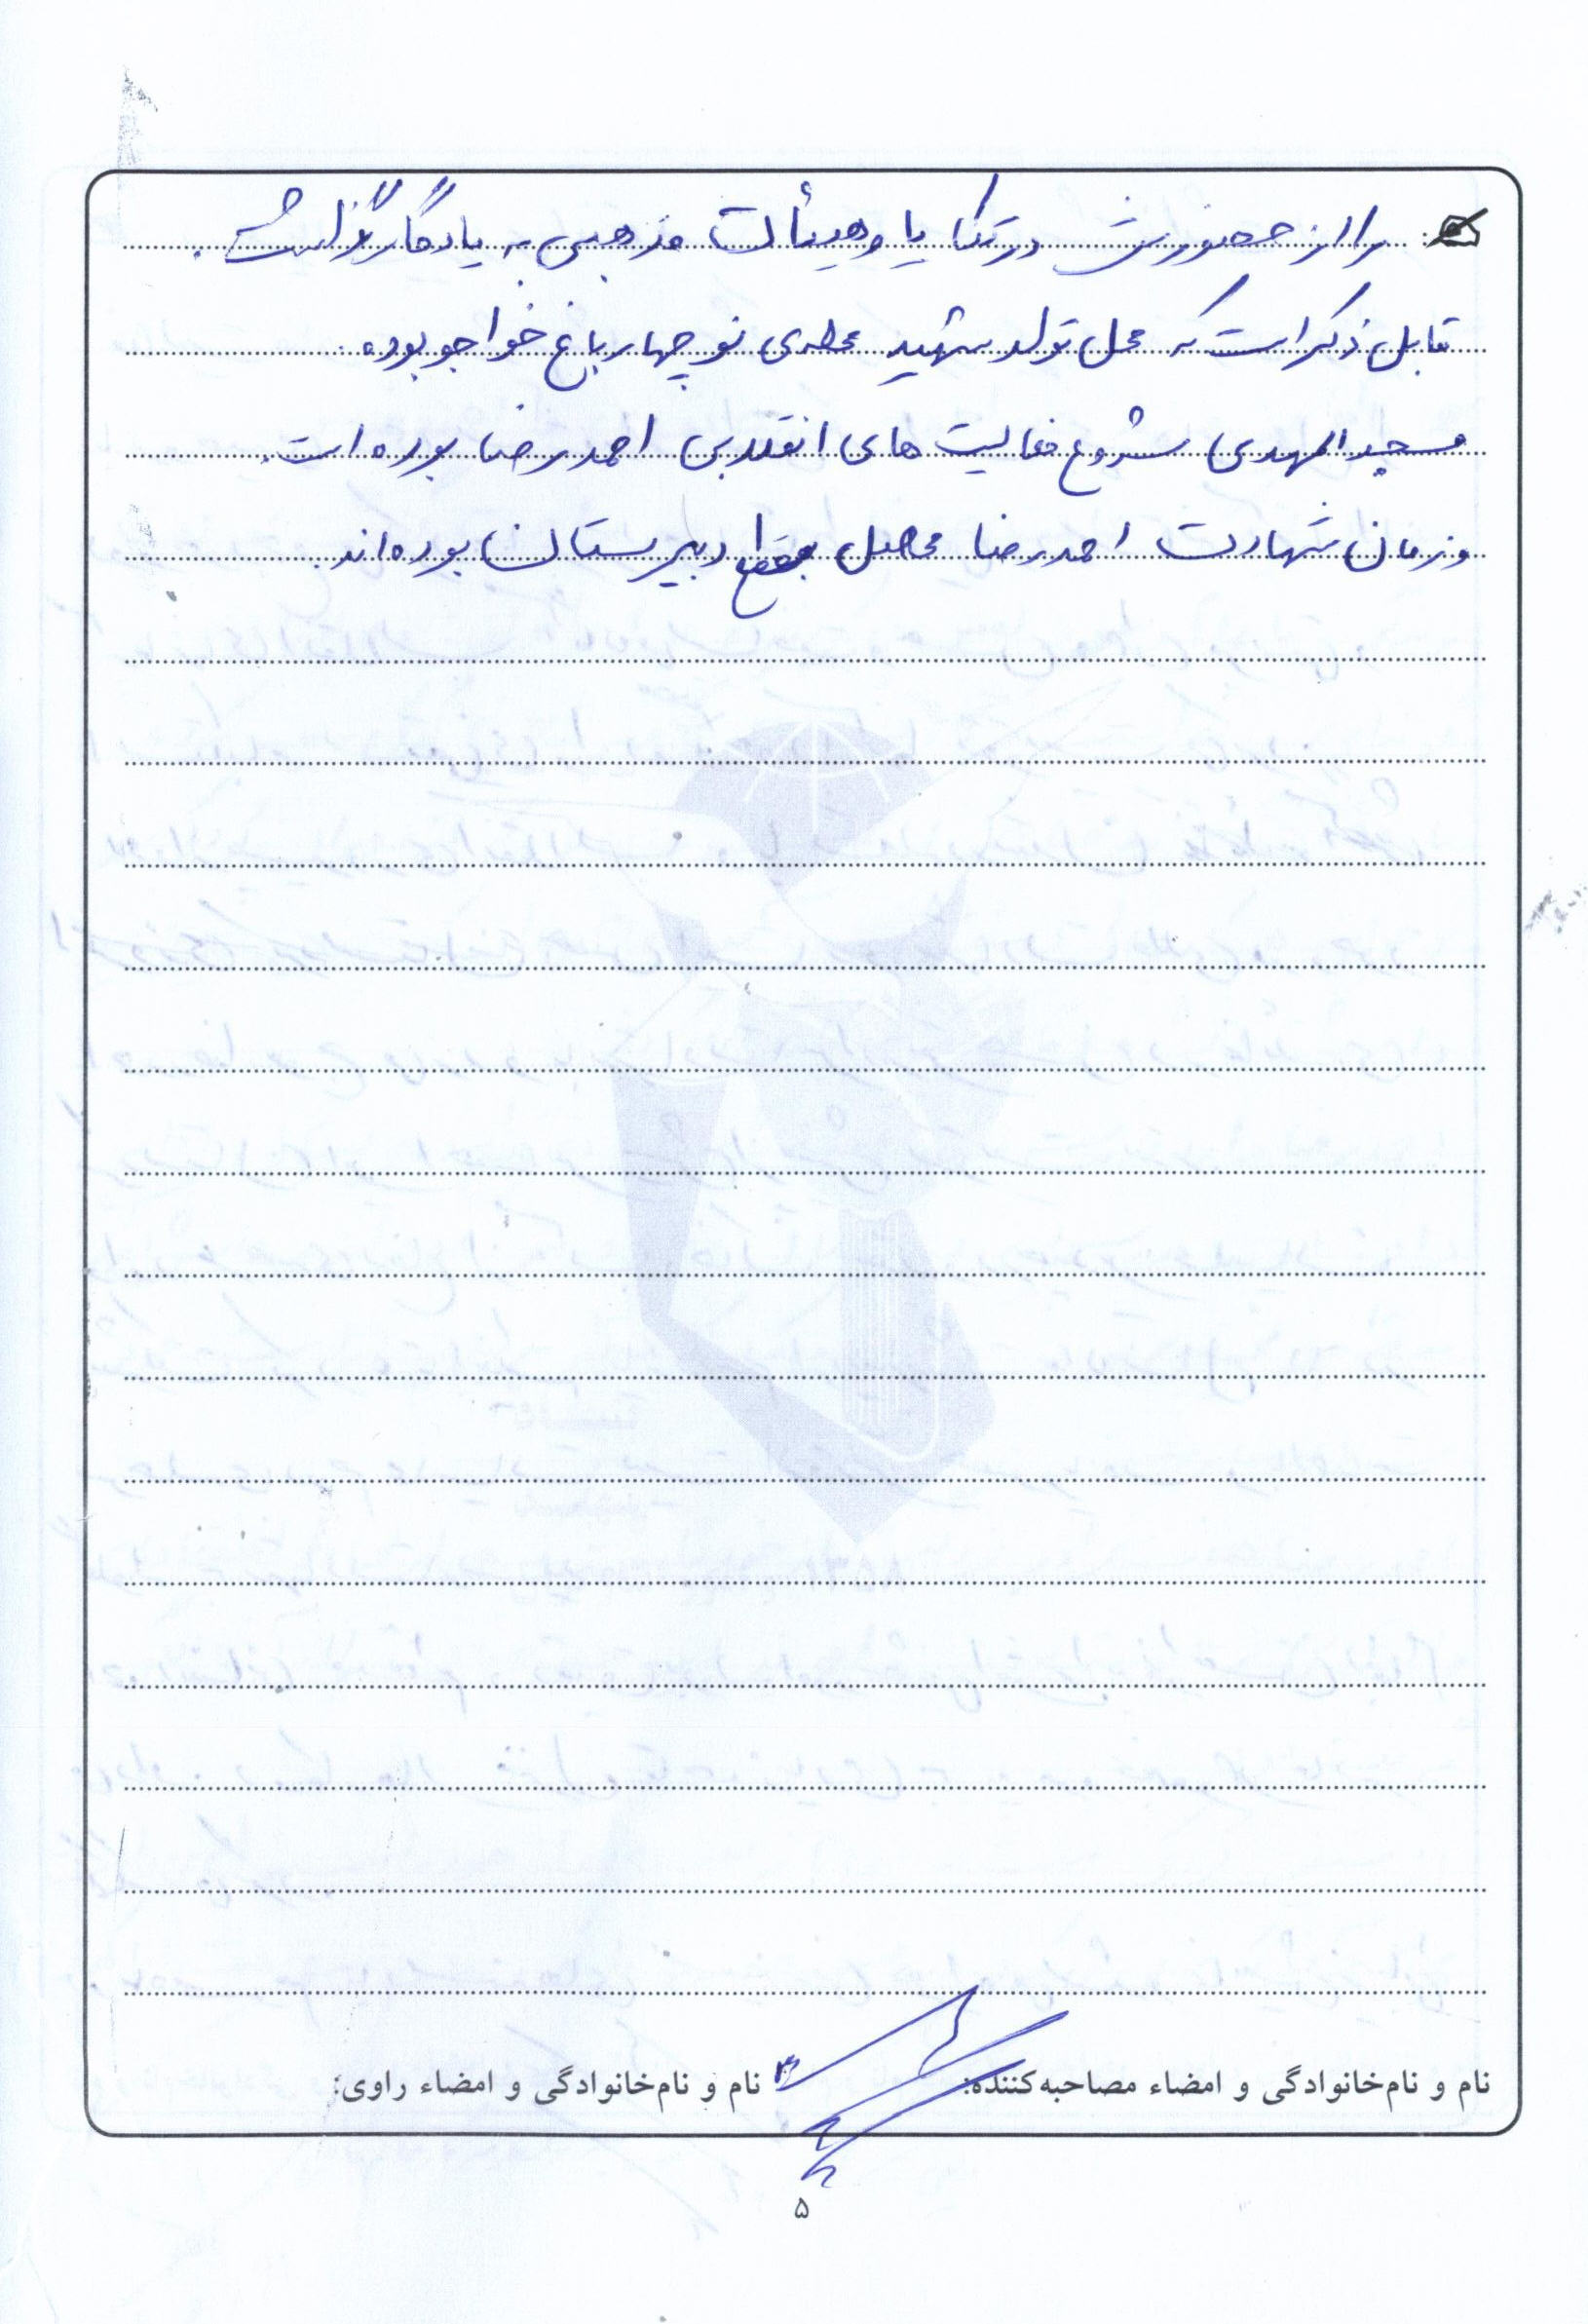 را از حضورش در تکایا و هیئات مذهبی به یادگار گذاشت.
قابل ذکر است که محل تولد شهید عطری نو چهارباغ خواجو بوده.
مسجد المهدی شروع فعالیت های انقلابی احمدرضا بوده است.
و زمان شهادت احمدرضا محصل مقطع دبیرستان بوده اند.
نام و نام‌خانوادگی و امضاء مصاحبه‌کننده: نام و نام‌خانوادگی و امضاء راوی:
۵